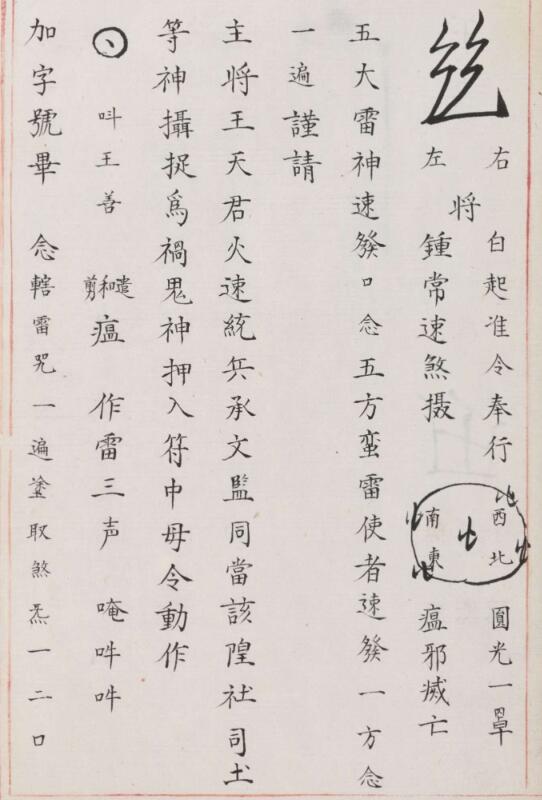 右 白起准令奉行 圓光一罩
將
左 鍾常速煞摄 瘟邪滅亡
西北
南東
五大雷神速發口念五方蛮雷使者速發一方念
一遍謹請
主將王天君火速統兵承文監同當該隍社司土
等神攝捉為禍鬼神押入符中毋令動作
呌王善 遣和剪瘟 作雷三声 唵吽吽
加字號畢 念轄雷咒一遍塗取煞炁一二口